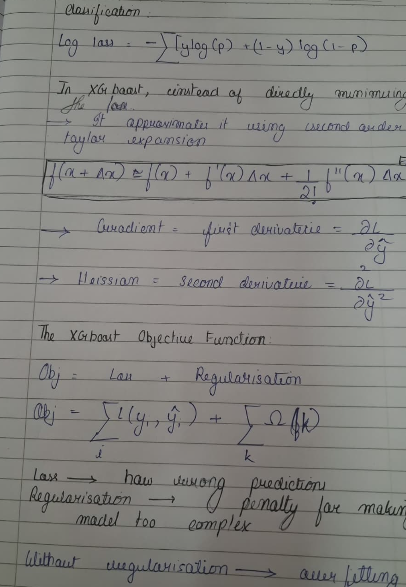 Classification:
Log loss = -∑[ylog(p) + (1-y) log(1-p)
In XGboost, instead of directly minimizing
the loss
→ It approximates it using second order
taylor expansion
f(x + Δx) ≈ f(x) + f'(x) Δx + 1/2! f''(x) Δx
→ Gradient = first derivative = ∂L/∂ŷ
→ Heissian = second derivative = ∂²L/∂ŷ²
The XGboost Objective Function:
Obj = Loss + Regularisation
Obj = ∑i l(yi, ŷi) + ∑k Ω(fk)
Loss → how wrong predictions
Regularisation → penalty for making
model too complex
Without regularisation → overfitting